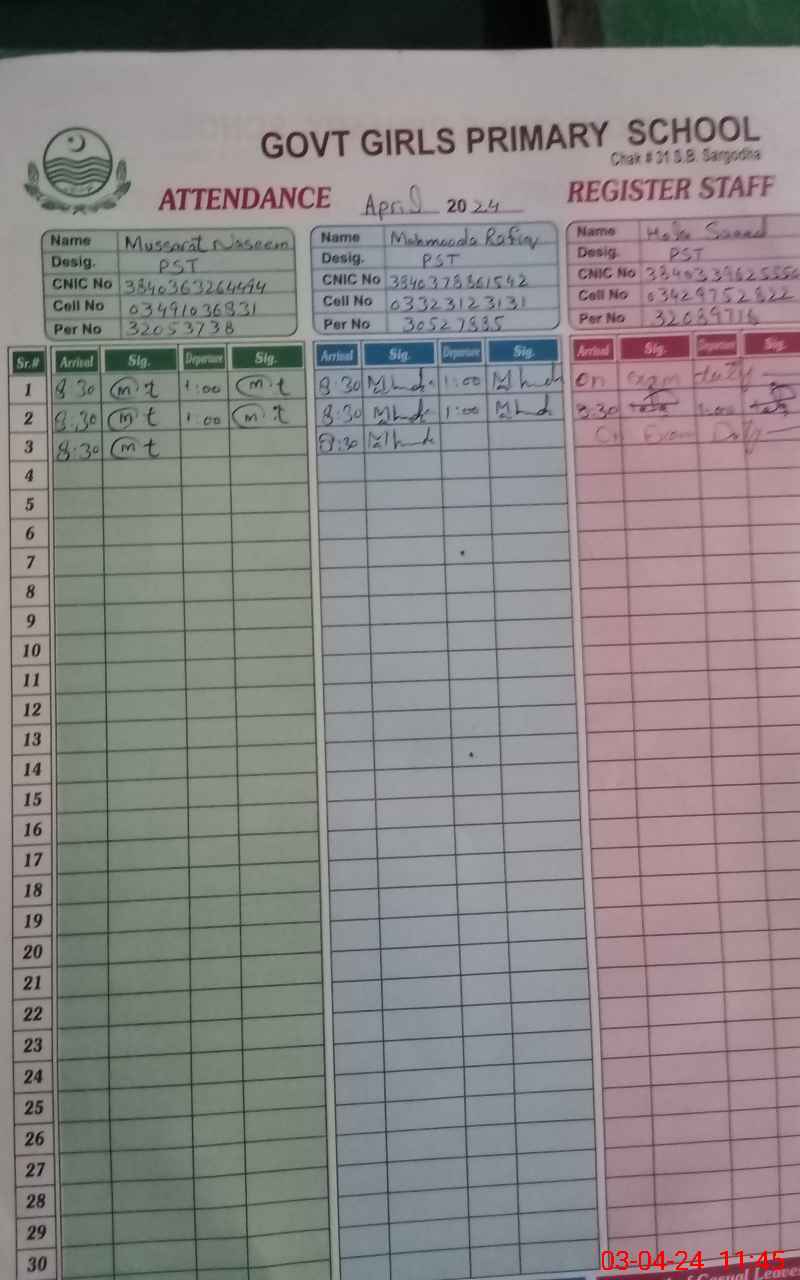 GOVT GIRLS PRIMARY SCHOOL
Chak # 31 S.B. Sargodha
ATTENDANCE April 2024 REGISTER STAFF
Name Mussarat Naseem Name Mahmooda Rafiq Name Saeed
Desig. PST Desig. PST Desig. PST
CNIC No 3840363264494 CNIC No 3840378361542 CNIC No
Cell No 03491036831 Cell No 03323123131 Cell No 03429752822
Per No 32053738 Per No 30527885 Per No
Sr.# Arrival Sig. Departure Sig. Arrival Sig. Departure Sig. Arrival Sig. Departure Sig.
1 8 30 m t 1:00 m t 8:30 1:00 On exam duty
2 8:30 m t 1:00 m t 8:30 1:00 8:30 1:00
3 8:30 m t 8:30 On Exam Duty
4
5
6
7
8
9
10
11
12
13
14
15
16
17
18
19
20
21
22
23
24
25
26
27
28
29
30
03-04-24 11:45
Leaves